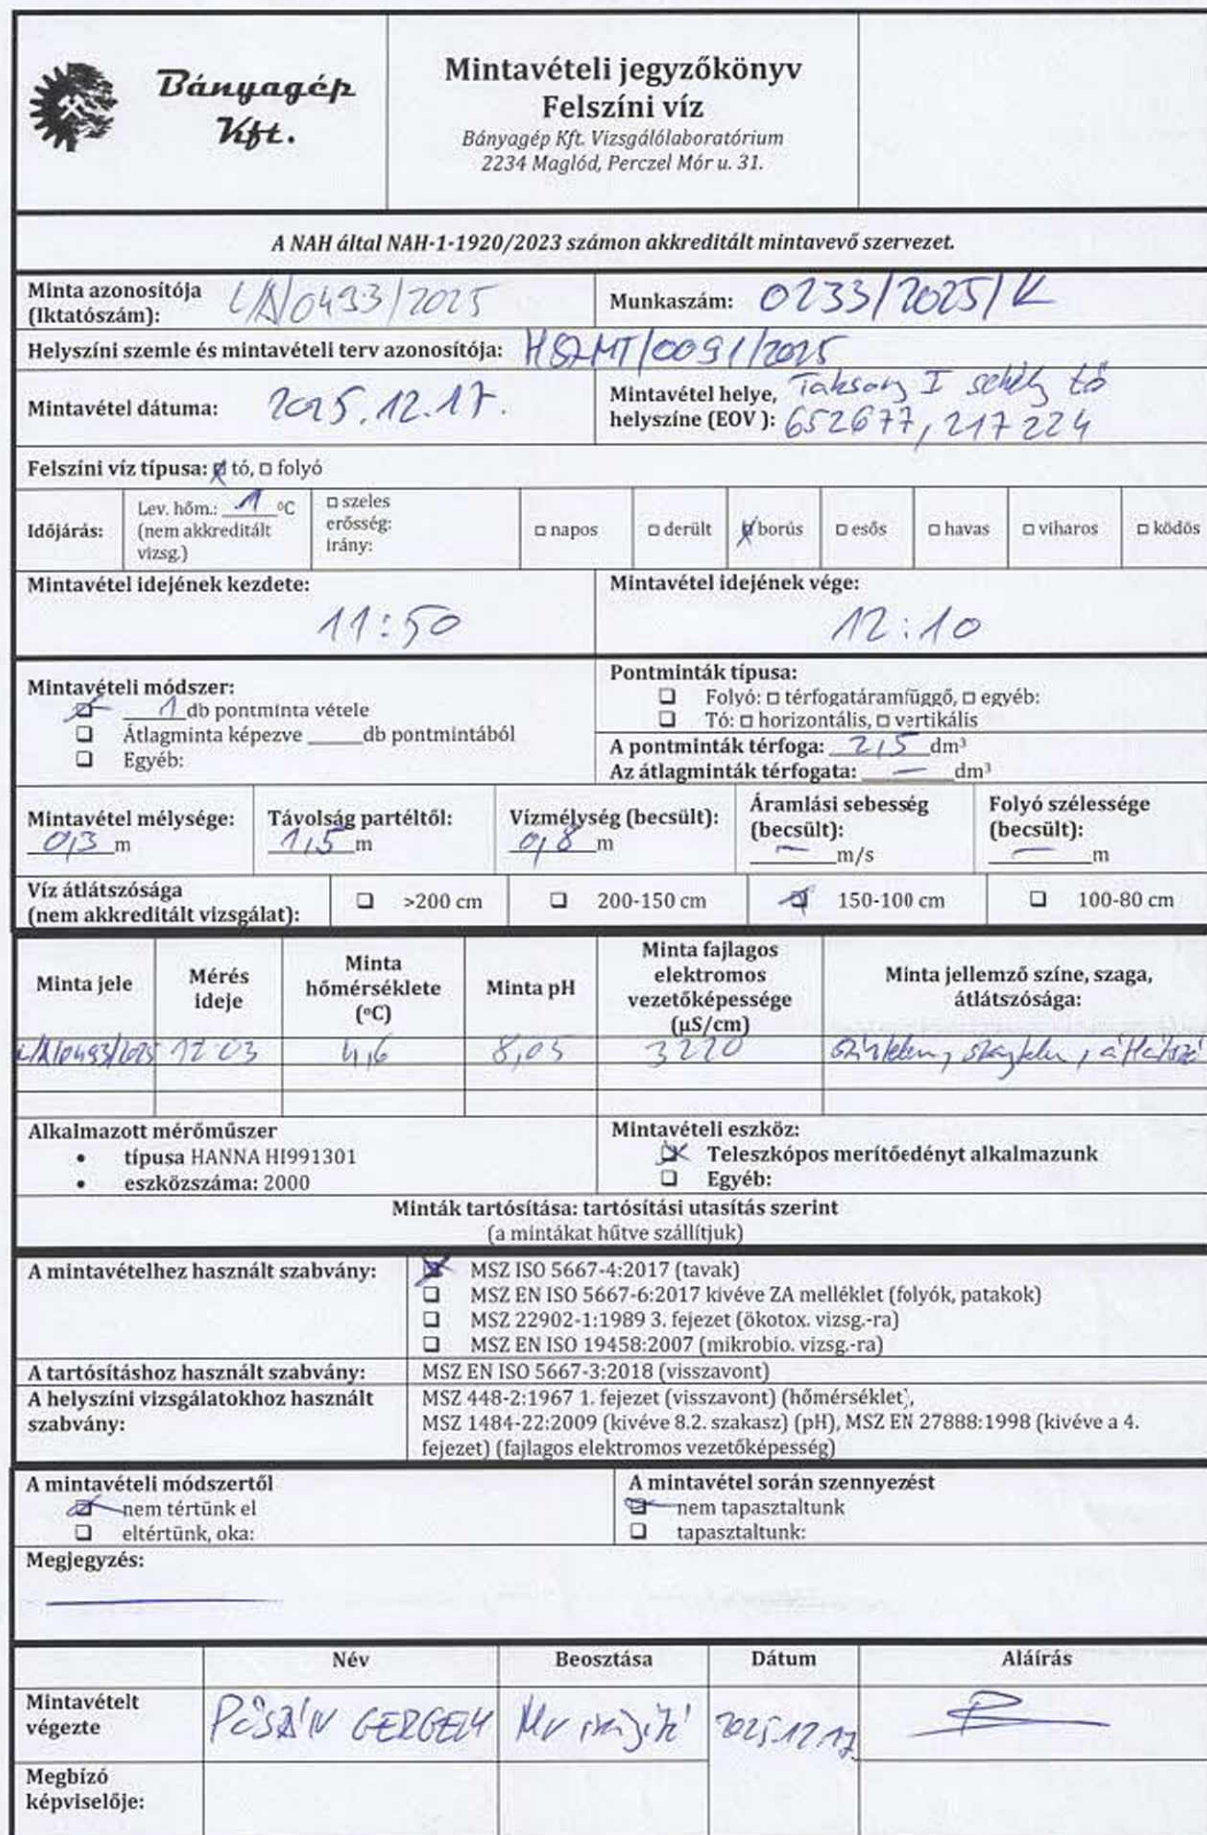 Bányagép
Kft.
Mintavételi jegyzőkönyv
Felszíni víz
Bányagép Kft. Vizsgálólaboratórium
2234 Maglód, Perczel Mór u. 31.
A NAH által NAH-1-1920/2023 számon akkreditált mintavevő szervezet.
Minta azonosítója
(Iktatószám): L/A/0493/2025
Munkaszám: 0233/2025/K
Helyszíni szemle és mintavételi terv azonosítója: HSZMT/0091/2025
Mintavétel dátuma: 2025.12.17.
Mintavétel helye, Taksony I sekély tó
helyszíne (EOV ): 652677, 217224
Felszíni víz típusa: ☒ tó, □ folyó
Időjárás:
Lev. hőm.: 1 °C
(nem akkreditált
vizsg.)
□ szeles
erősség:
irány:
□ napos
□ derült
☒ borús
□ esős
□ havas
□ viharos
□ ködös
Mintavétel idejének kezdete:
11:50
Mintavétel idejének vége:
12:10
Mintavételi módszer:
☒ 1 db pontminta vétele
❑ Átlagminta képezve _____db pontmintából
❑ Egyéb:
Pontminták típusa:
❑ Folyó: □ térfogatáramfüggő, □ egyéb:
❑ Tó: □ horizontális, □ vertikális
A pontminták térfoga: 2,5 dm³
Az átlagminták térfogata: — dm³
Mintavétel mélysége:
0,3 m
Távolság partéltől:
1,5 m
Vízmélység (becsült):
0,8 m
Áramlási sebesség
(becsült):
— m/s
Folyó szélessége
(becsült):
— m
Víz átlátszósága
(nem akkreditált vizsgálat):
❑ >200 cm
❑ 200-150 cm
☒ 150-100 cm
❑ 100-80 cm
Minta jele
Mérés
ideje
Minta
hőmérséklete
(°C)
Minta pH
Minta fajlagos
elektromos
vezetőképessége
(µS/cm)
Minta jellemző színe, szaga,
átlátszósága:
L/A/0493/2025 12:03 4,6 8,05 3220 színtelen, szagtalan, átlátszó
Alkalmazott mérőműszer
• típusa HANNA HI991301
• eszközszáma: 2000
Mintavételi eszköz:
☒ Teleszkópos merítőedényt alkalmazunk
❑ Egyéb:
Minták tartósítása: tartósítási utasítás szerint
(a mintákat hűtve szállítjuk)
A mintavételhez használt szabvány:
☒ MSZ ISO 5667-4:2017 (tavak)
❑ MSZ EN ISO 5667-6:2017 kivéve ZA melléklet (folyók, patakok)
❑ MSZ 22902-1:1989 3. fejezet (ökotox. vizsg.-ra)
❑ MSZ EN ISO 19458:2007 (mikrobio. vizsg.-ra)
A tartósításhoz használt szabvány: MSZ EN ISO 5667-3:2018 (visszavont)
A helyszíni vizsgálatokhoz használt
szabvány:
MSZ 448-2:1967 1. fejezet (visszavont) (hőmérséklet),
MSZ 1484-22:2009 (kivéve 8.2. szakasz) (pH), MSZ EN 27888:1998 (kivéve a 4.
fejezet) (fajlagos elektromos vezetőképesség)
A mintavételi módszertől
☒ nem tértünk el
❑ eltértünk, oka:
A mintavétel során szennyezést
☒ nem tapasztaltunk
❑ tapasztaltunk:
Megjegyzés:
Név
Beosztása
Dátum
Aláírás
Mintavételt
végezte
PÓSÁN GERGELY
2025.12.17.
Megbízó
képviselője: